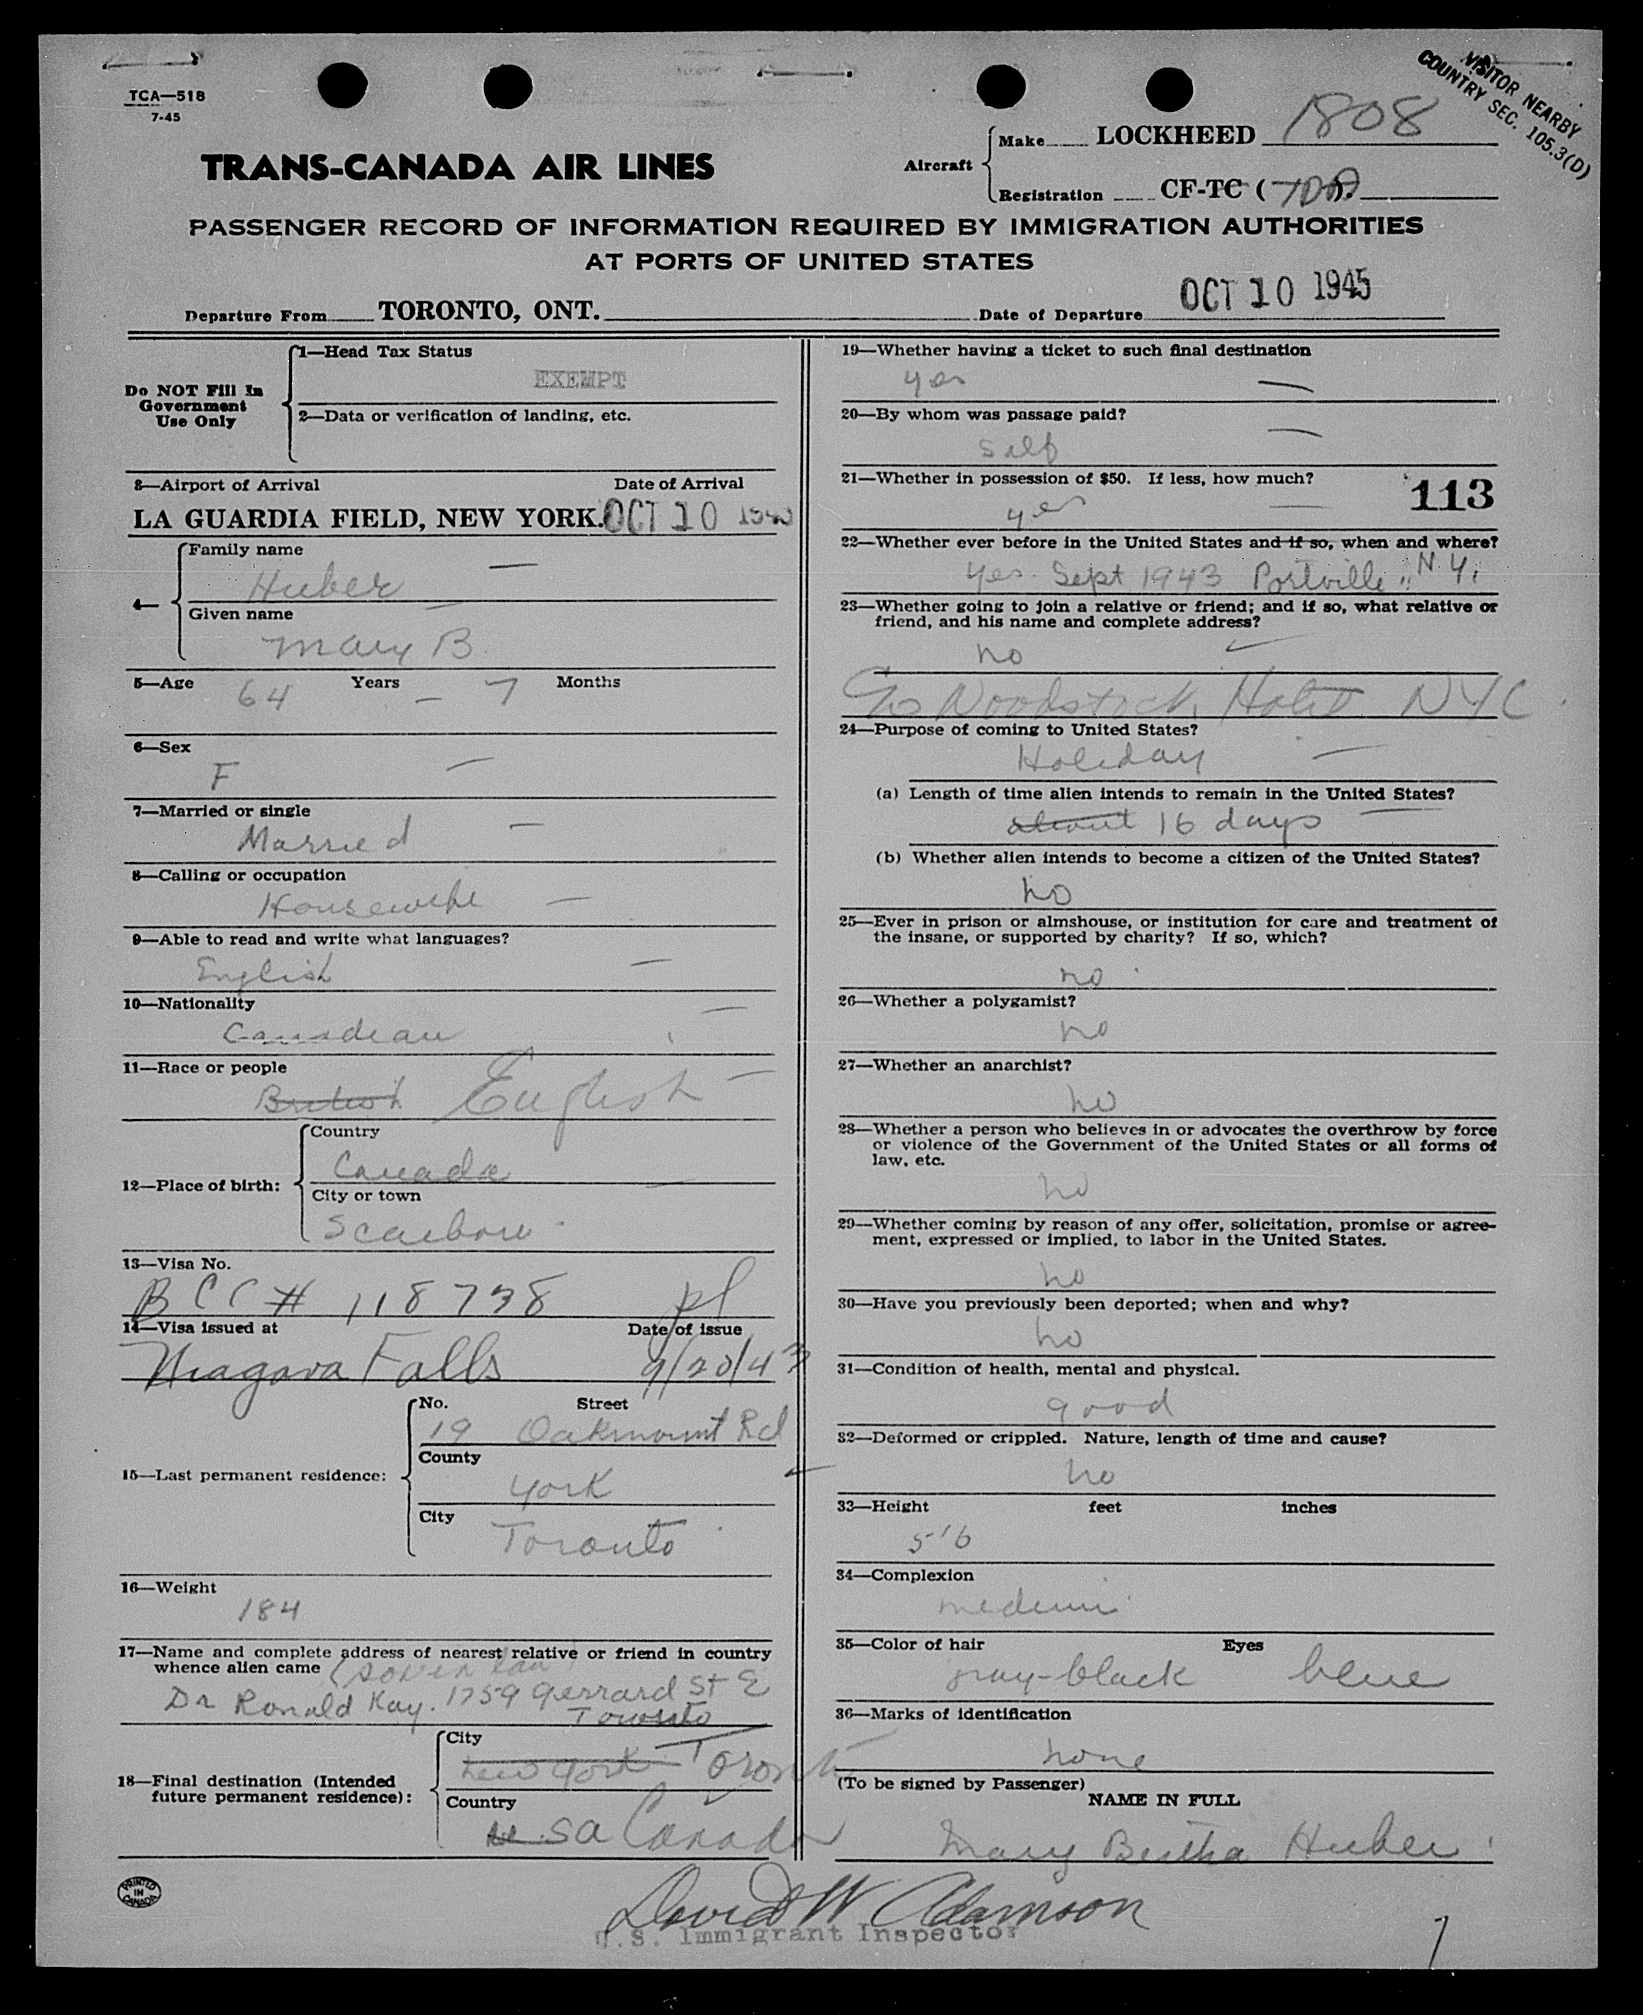 TCA—518
7-45
VISITOR NEARBY
COUNTRY SEC. 105.3(D)
TRANS-CANADA AIR LINES
Aircraft
Make LOCKHEED 1808
Registration CF-TC (
PASSENGER RECORD OF INFORMATION REQUIRED BY IMMIGRATION AUTHORITIES
AT PORTS OF UNITED STATES
Departure From TORONTO, ONT. Date of Departure OCT 10 1945
Do NOT Fill In
Government
Use Only
1—Head Tax Status
EXEMPT
2—Data or verification of landing, etc.
3—Airport of Arrival Date of Arrival
LA GUARDIA FIELD, NEW YORK. OCT 10
4—
Family name
Huber —
Given name
Mary B.
5—Age 64 Years — 7 Months
6—Sex
F —
7—Married or single
Married —
8—Calling or occupation
Housewife —
9—Able to read and write what languages?
English —
10—Nationality
Canadian —
11—Race or people
British English —
12—Place of birth:
Country
Canada —
City or town
Scarboro
13—Visa No.
BCC # 118738
14—Visa issued at Date of issue
Niagara Falls 9/20/43
15—Last permanent residence:
No. Street
19 Oakmount Rd
County
York
City
Toronto
16—Weight
184
17—Name and complete address of nearest relative or friend in country
whence alien came (son in law
Dr Ronald Kay. 1759 Gerrard St E
Toronto
18—Final destination (Intended
future permanent residence):
City
New York Toronto
Country
U.S.A. Canada
19—Whether having a ticket to such final destination
yes —
20—By whom was passage paid?
Self —
21—Whether in possession of $50. If less, how much?
yes — 113
22—Whether ever before in the United States and if so, when and where?
Yes. Sept 1943 Portville N.Y.
23—Whether going to join a relative or friend; and if so, what relative or
friend, and his name and complete address?
no
Woodstock Hotel NYC
24—Purpose of coming to United States?
Holiday —
(a) Length of time alien intends to remain in the United States?
about 16 days —
(b) Whether alien intends to become a citizen of the United States?
no
25—Ever in prison or almshouse, or institution for care and treatment of
the insane, or supported by charity? If so, which?
no
26—Whether a polygamist?
no
27—Whether an anarchist?
no
28—Whether a person who believes in or advocates the overthrow by force
or violence of the Government of the United States or all forms of
law, etc.
no
29—Whether coming by reason of any offer, solicitation, promise or agree-
ment, expressed or implied, to labor in the United States.
no
30—Have you previously been deported; when and why?
no
31—Condition of health, mental and physical.
good
32—Deformed or crippled. Nature, length of time and cause?
no
33—Height feet inches
5'6
34—Complexion
medium
35—Color of hair Eyes
gray-black blue
36—Marks of identification
none
(To be signed by Passenger)
NAME IN FULL
Mary Bertha Huber
David W Adamson
U.S. Immigrant Inspector
PRINTED
IN
CANADA